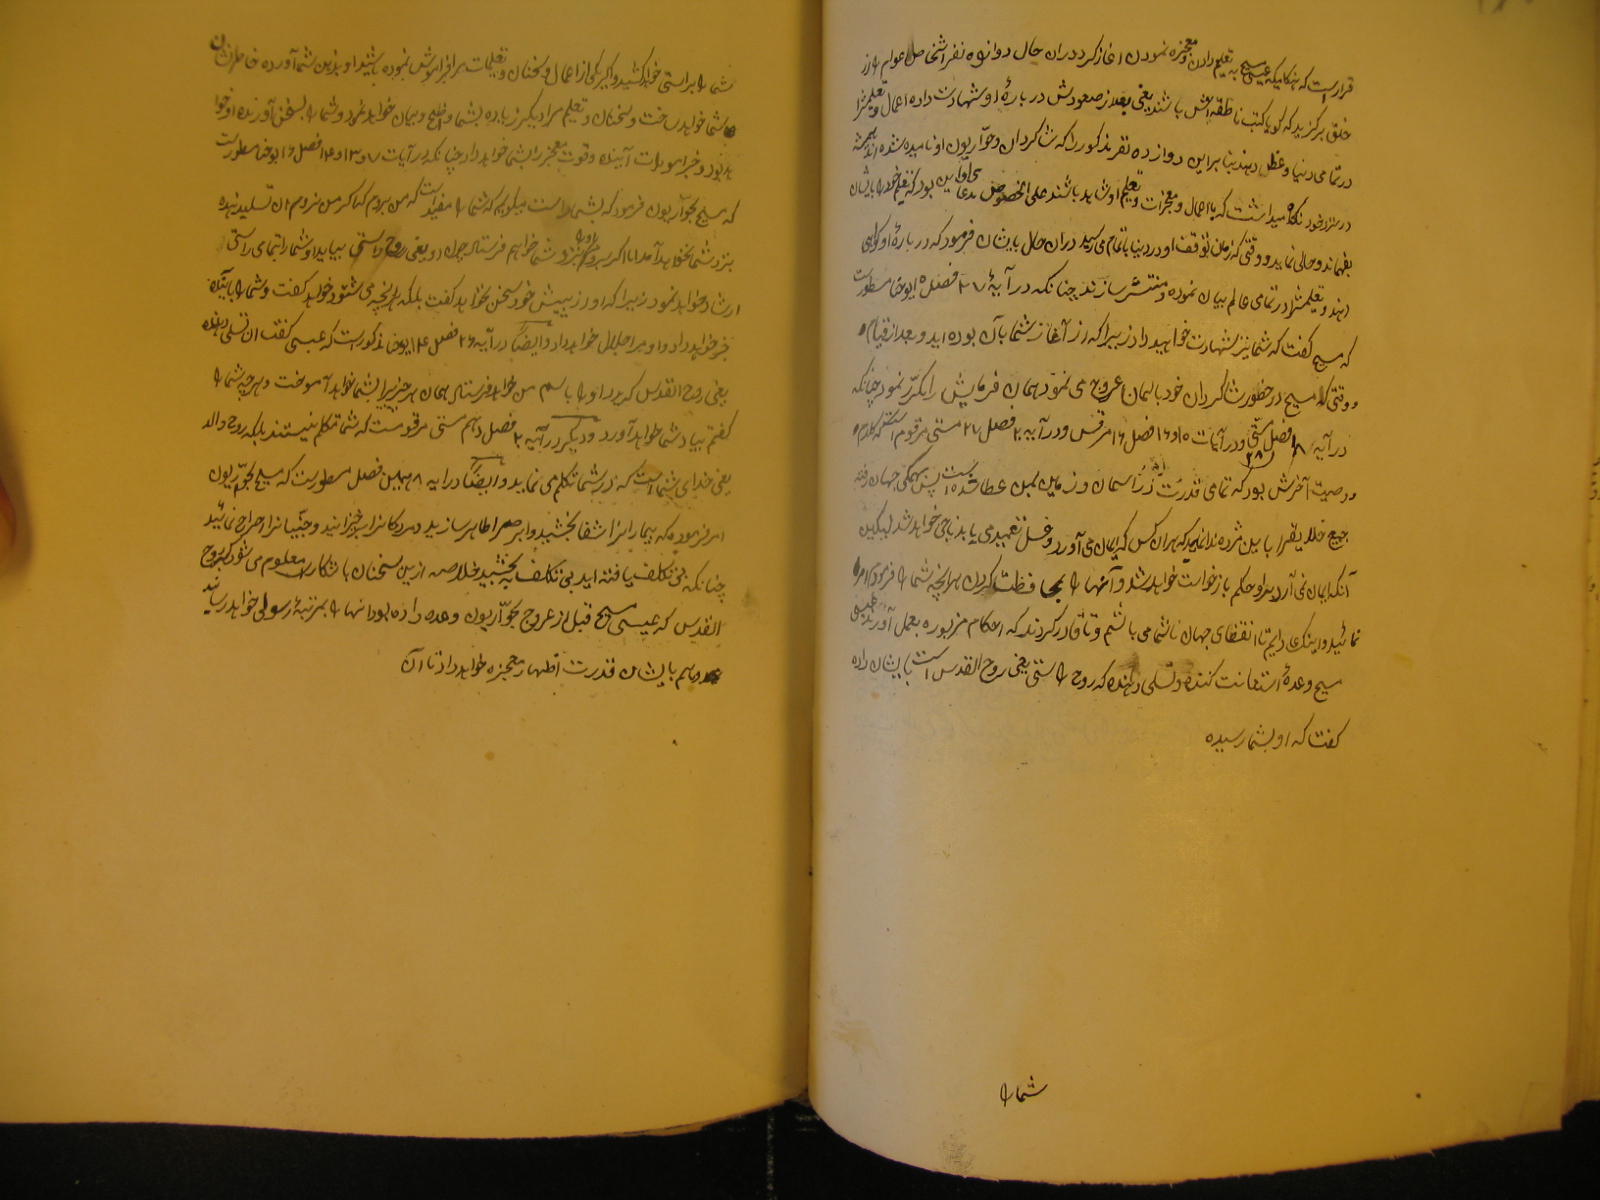 قرار است که هنگامیکه عیسی مسیح به تعلیم دادن و معجزه نمودن اغاز کرد دران حال دوازده نفر اشخاص از عوام
خلق برگزید که گویا کتب ناطقه‌اش باشند یعنی بعد از صعودش دربارهٔ او شهادت داده اعمال و تعلیمش را
در تمامی دنیا وعظ دهند بنابراین دوازده نفر مذکور را که شاگردان و حواریون او نامیده شده اند همیشه
در نزد خود نگاه میداشت که با اعمال و معجزات و تعلیم او شاهد باشند علی الخصوص بود که تعلیم خود را بایشان
بفهماند و حالی نماید و وقتی که زمان توقف او در دنیا باتمام می رسید دران حال بایشان فرمود که دربارهٔ او گواهی
دهند و تعلیمش را در تمامی عالم بیان نموده و منتشر سازند چنانکه در آیهٔ ۲۷ فصل ۱۵ یوحنا مسطور است
که مسیح گفت که شما نیز شهادت خواهید داد زیرا که از آغاز شما با من بوده اید و بعد از قیام
و وقتی که مسیح در حضور شاگردان خود بآسمان عروج می نمود همان فرمایش را مکرر نمود چنانکه
در آیه ۱۸ فصل ۲۸ متی و در آیات ۱۵ و ۱۶ فصل ۱۶ مرقس و در آیه ۲۰ فصل ۲۸ متی مرقوم است که کلام
و وصیت آخرش بود که تمامی قدرت در آسمان و زمین بمن عطا شده است پس بهمگی جهان رفته
جمیع خلایق را باین مژده ندا نمایید که هر آن کس که ایمان می آورد و غسل تعمید می یابد ناجی خواهد شد لیکن
آنکه ایمان نمی آرد براو حکم بازخواست خواهد شد و آنها را بمحافظت کردن هر آنچه شما را فرموده ام امر
نمائید و اینک من دایم تا انقضای جهان با شما می باشم و تا قادر گردند که احکام مزبوره بعمل آورند
مسیح وعدهٔ استعانت کننده و تسلی دهنده که روح راستی یعنی روح القدس است بایشان داده
گفت که او بشما رسیده
شما را
شما را براستی خواهد کشید و اگر یکی از اعمال و سخنان و تعلیمات مرا فراموش نموده باشید او بذهن شما آورده خاطرنشان
شما خواهد ساخت و سخنان و تعلیم مرا دیگر زیاده بشما واضح و بیان خواهد نمود و شما را بسخن آورنده او خوا
هد بود و خبر امورات آینده و قوت معجز را بشما خواهد داد چنانکه در آیات ۷ و ۱۳ و ۱۴ فصل ۱۶ یوحنا مسطور است
که مسیح بحواریون فرمود که بشما راست میگویم که شما را مفید است که من بروم که اگر من نروم آن تسلی دهنده
بنزد شما نخواهد آمد اما اگر بروم او را بنزد شما خواهم فرستاد چون او یعنی روح راستی بیاید او شما را بتمامی راستی
ارشاد خواهد نمود زیرا که او از پیش خود سخن نخواهد گفت بلکه هر آنچه می شنود خواهد گفت و شما را بآینده
خبر خواهد داد و او مرا جلال خواهد داد و ایضاً در آیه ۲۶ فصل ۱۴ یوحنا مذکور است که عیسی گفت ان تسلی دهنده
یعنی روح القدس که پدر او را باسم من خواهد فرستاد همان هر چیز را بشما خواهد آموخت و هر چه بشما
گفتم بیاد شما خواهد آورد و دیگر در آیه ۲۰ فصل دهم متی مرقوم است که شما متکلم نیستند بلکه روح والد
یعنی خدای شما است که در شما تکلم می نماید و ایضاً در ایه ۸ همین فصل مسطور است که مسیح بحواریون
امر فرموده که بیماران را شفا بخشید و ابرصان را طاهر سازید مردگان را برخیزانید و جنیان را اخراج نمائید
چنانکه بی تکلف یافته اید بی تکلف بخشید خلاصه از این سخنان باشکار معلوم می شود که روح
القدس که عیسی مسیح قبل از عروج بحواریون وعده داده بود انها را بمرتبهٔ رسولی خواهد رسانید
و هم بایشان قدرت اظهار معجزه خواهد داد تا آن